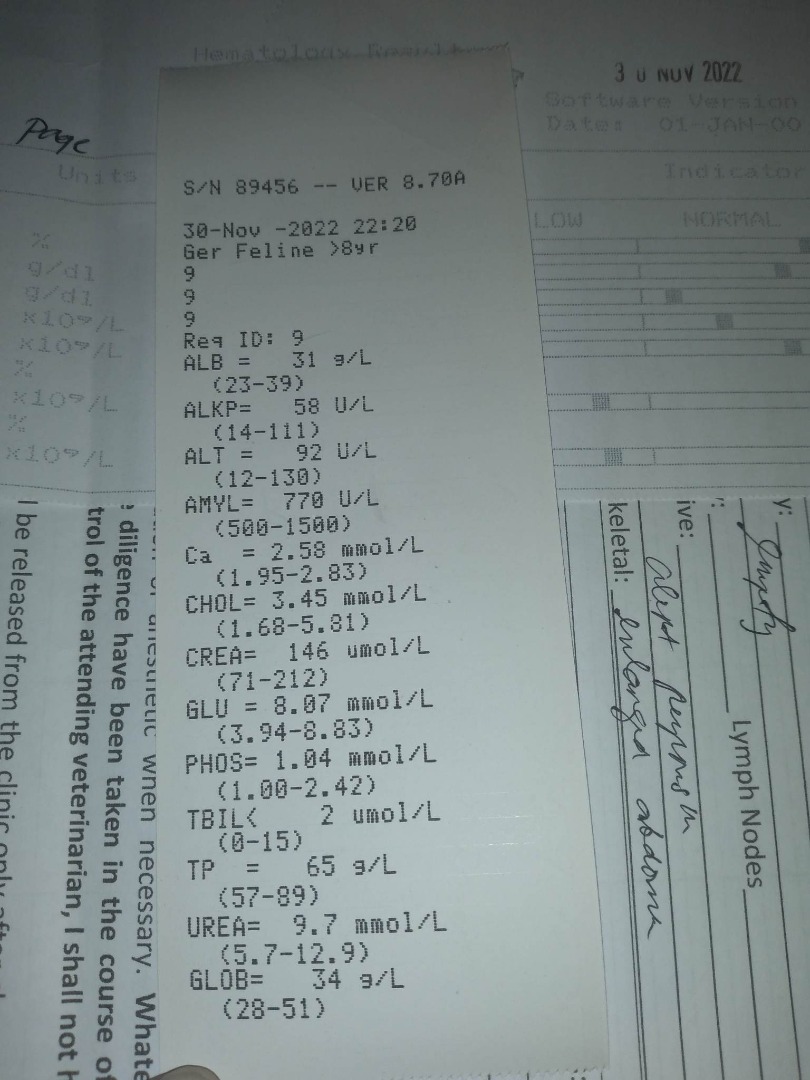 Hematology Result
30 NOV 2022
Software Version
Date: 01-JAN-00
Page
Units
Indicator
LOW NORMAL
%
g/dl
g/dl
x10⁹/L
x10⁹/L
%
x10⁹/L
%
x10⁹/L
S/N 89456 -- VER 8.70A
30-Nov -2022 22:20
Ger Feline >8yr
9
9
9
Req ID: 9
ALB = 31 g/L
(23-39)
ALKP= 58 U/L
(14-111)
ALT = 92 U/L
(12-130)
AMYL= 770 U/L
(500-1500)
Ca = 2.58 mmol/L
(1.95-2.83)
CHOL= 3.45 mmol/L
(1.68-5.81)
CREA= 146 umol/L
(71-212)
GLU = 8.07 mmol/L
(3.94-8.83)
PHOS= 1.04 mmol/L
(1.00-2.42)
TBIL< 2 umol/L
(0-15)
TP = 65 g/L
(57-89)
UREA= 9.7 mmol/L
(5.7-12.9)
GLOB= 34 g/L
(28-51)
y: Empty
Lymph Nodes
ive: alert
keletal: enlarged abdomen
anesthetic when necessary. Whate
diligence have been taken in the course of
trol of the attending veterinarian, I shall not h
l be released from the clinic only after